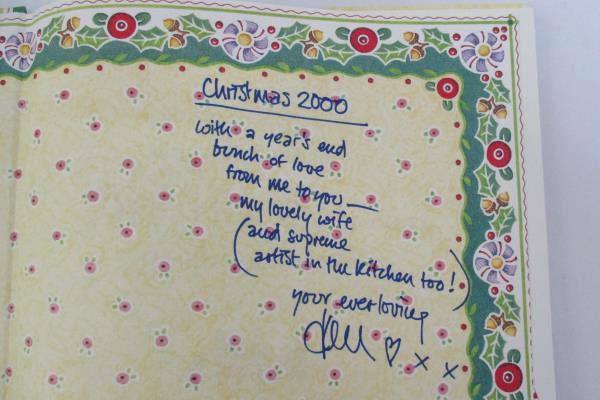 Christmas 2000
with a year's end
bunch of love
from me to you —
my lovely wife
(and supreme
artist in the kitchen too!)
your everloving
Ken ♡ x x